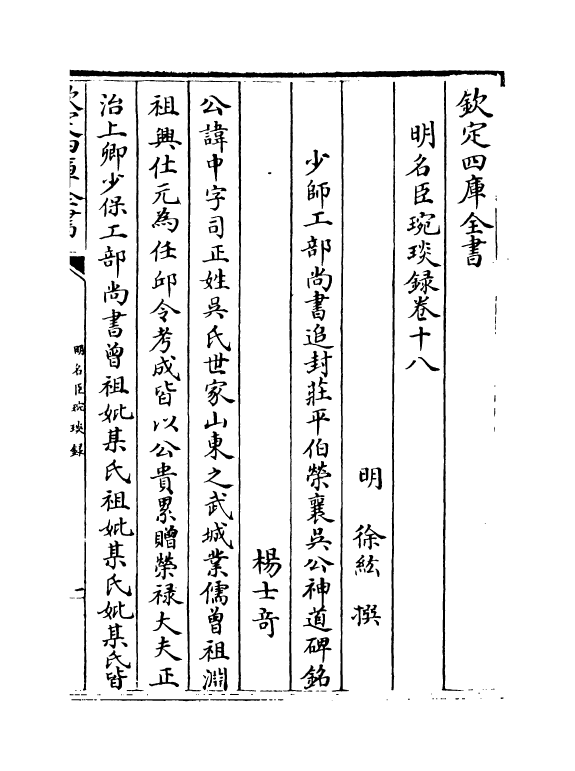 欽定四庫全書
明名臣琬琰録卷十八
明　徐紘　撰
少師工部尚書追封莊平伯榮襄吳公神道碑銘
楊士竒
公諱中字司正姓吳氏世家山東之武城業儒曾祖淵
祖興仕元為任邱令考成皆以公貴累贈榮禄大夫正
治上卿少保工部尚書曾祖妣某氏祖妣某氏妣某氏皆
欽定四庫全書
明名臣琬琰録
一